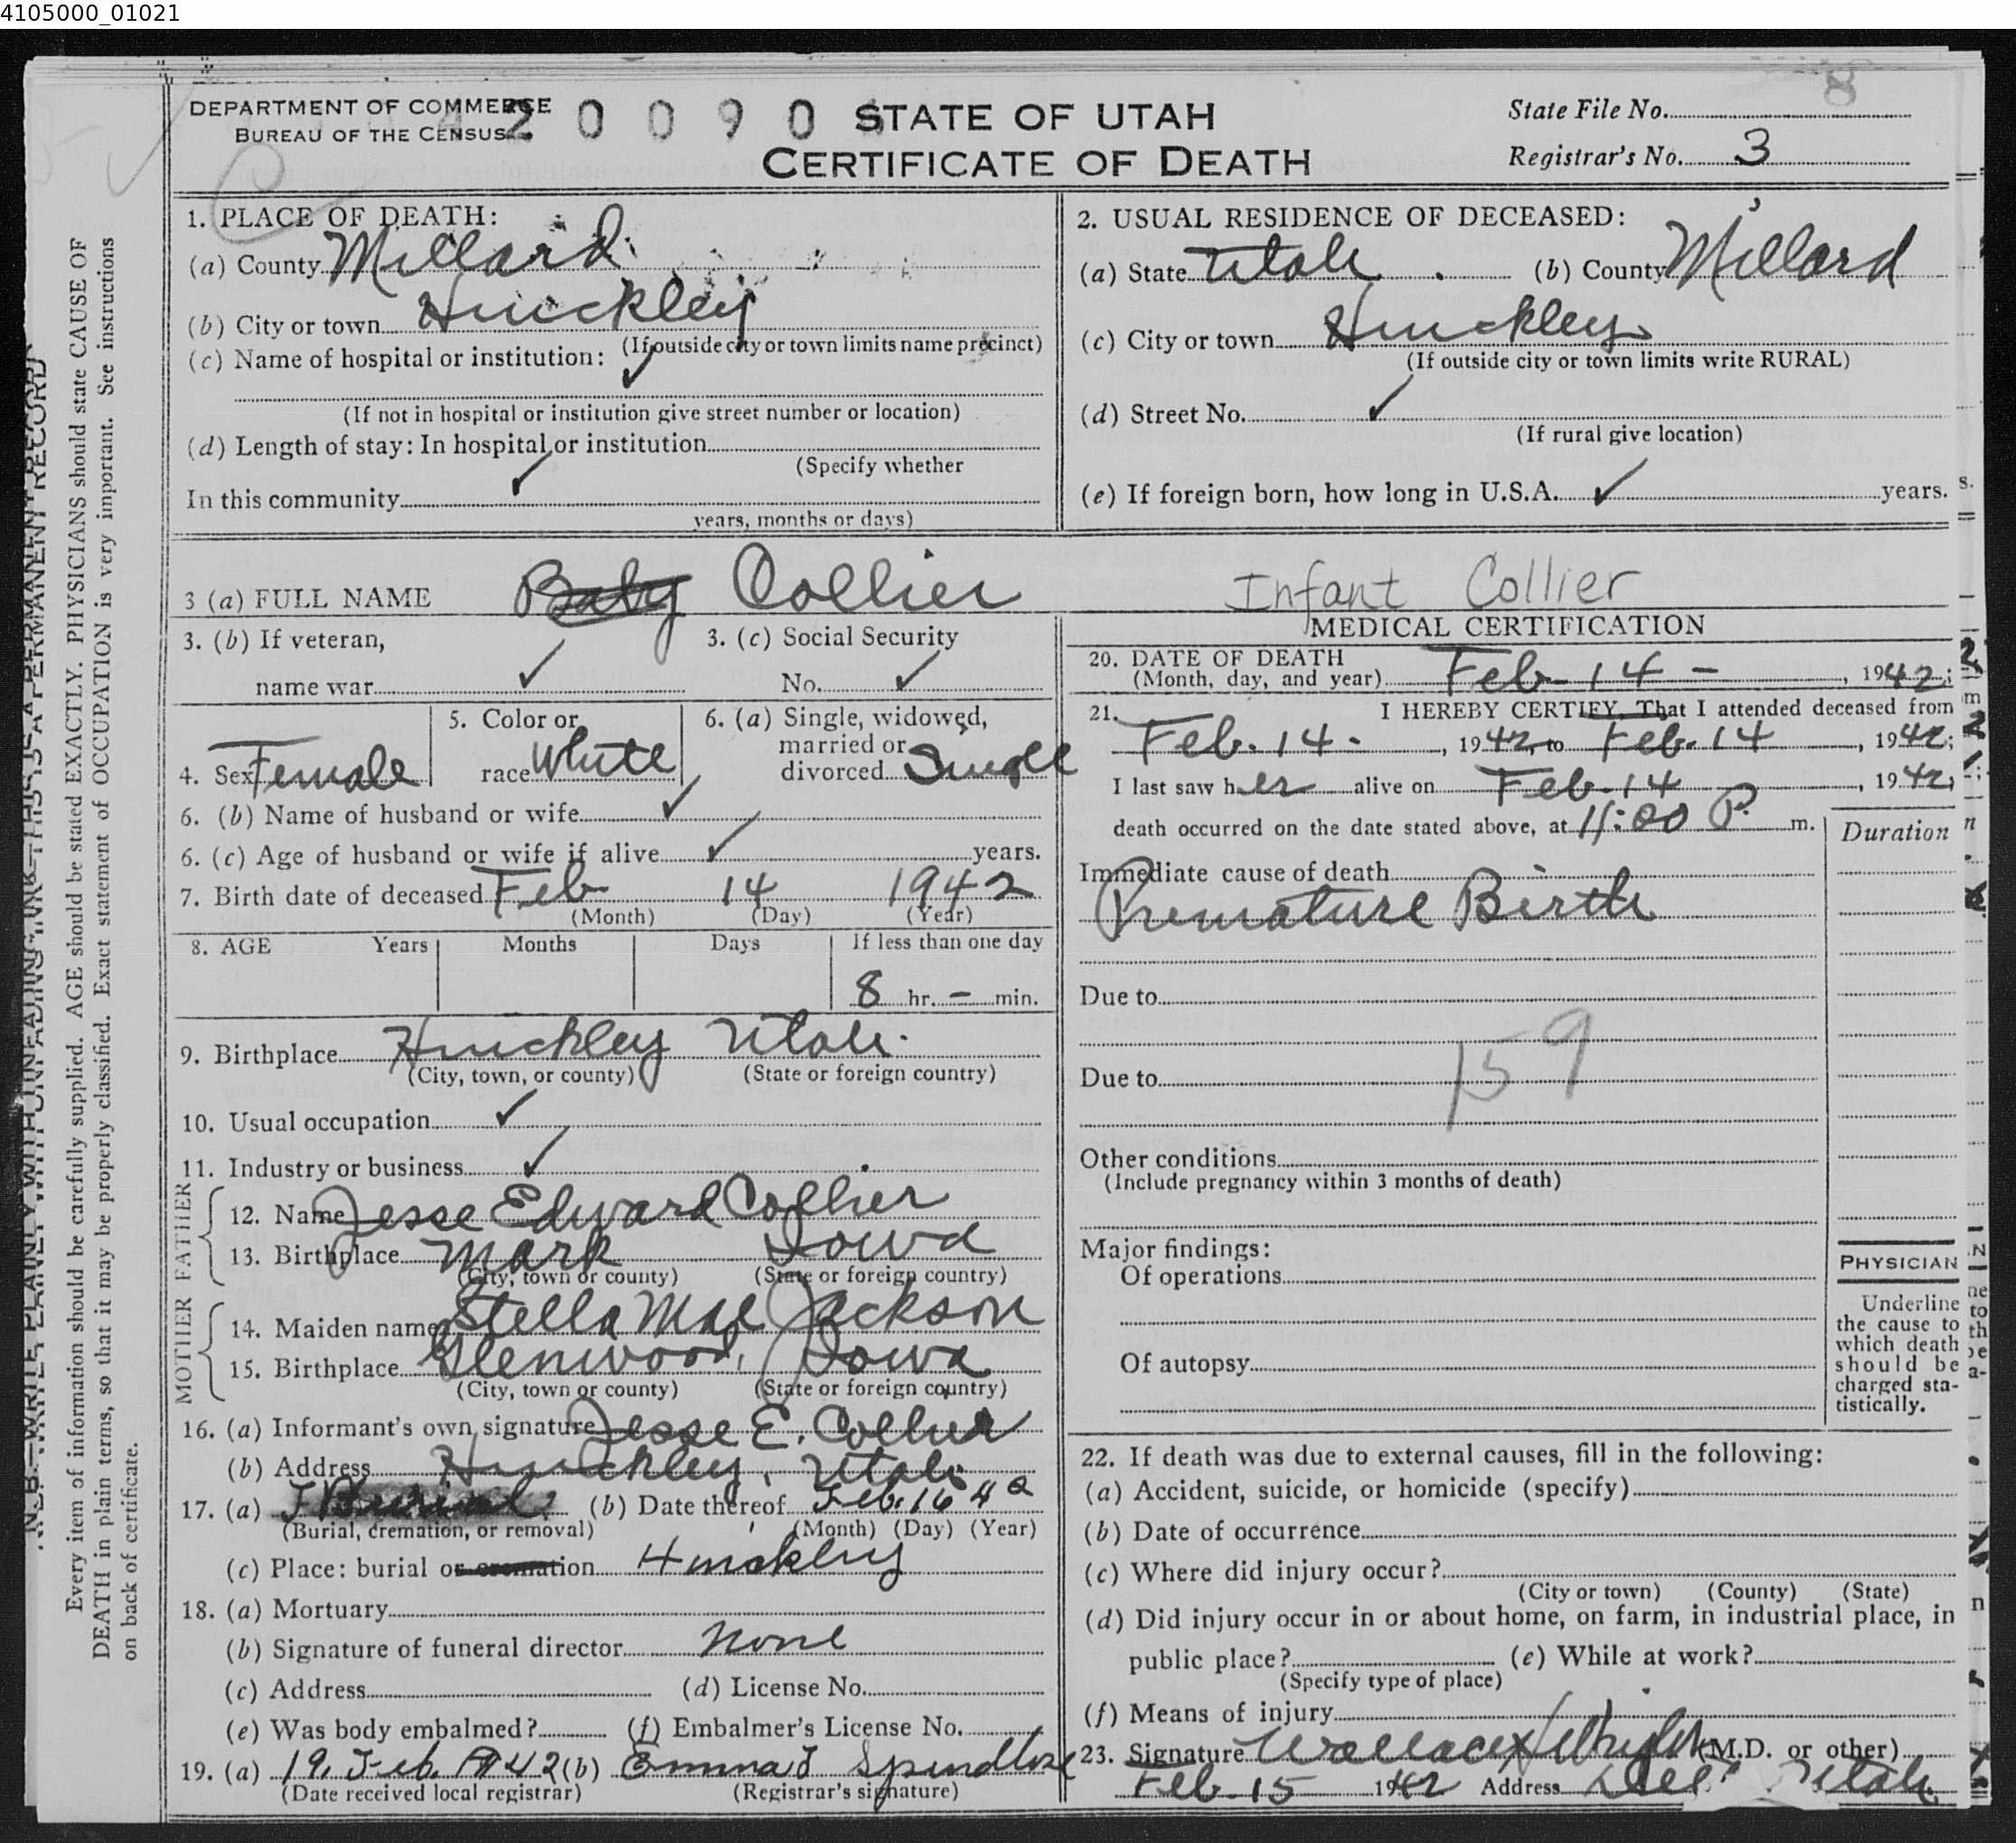 4105000_01021
DEPARTMENT OF COMMERCE
BUREAU OF THE CENSUS
2 0 0 9 0
STATE OF UTAH
CERTIFICATE OF DEATH
State File No.
8
Registrar's No. 3
1. PLACE OF DEATH:
(a) County Millard
(b) City or town Hinckley
(If outside city or town limits name precinct)
(c) Name of hospital or institution: ✓
(If not in hospital or institution give street number or location)
(d) Length of stay: In hospital or institution
(Specify whether
In this community ✓
years, months or days)
2. USUAL RESIDENCE OF DECEASED:
(a) State Utah (b) County Millard
(c) City or town Hinckley
(If outside city or town limits write RURAL)
(d) Street No. ✓
(If rural give location)
(e) If foreign born, how long in U.S.A. ✓ years.
3 (a) FULL NAME Baby Collier Infant Collier
3. (b) If veteran,
name war ✓
3. (c) Social Security
No. ✓
4. Sex Female
5. Color or
race White
6. (a) Single, widowed,
married or
divorced Single
6. (b) Name of husband or wife ✓
6. (c) Age of husband or wife if alive ✓ years.
7. Birth date of deceased Feb 14 1942
(Month) (Day) (Year)
8. AGE Years Months Days If less than one day
8 hr. – min.
9. Birthplace Hinckley Utah.
(City, town, or county) (State or foreign country)
10. Usual occupation ✓
11. Industry or business ✓
FATHER
12. Name Jesse Edward Collier
13. Birthplace Mark Iowa
(City, town or county) (State or foreign country)
MOTHER
14. Maiden name Stella Mae Jackson
15. Birthplace Glenwood, Iowa
(City, town or county) (State or foreign country)
16. (a) Informant's own signature Jesse E. Collier
(b) Address Hinckley, Utah
17. (a) Burial (b) Date thereof Feb. 16 42
(Burial, cremation, or removal) (Month) (Day) (Year)
(c) Place: burial or cremation Hinckley
18. (a) Mortuary
(b) Signature of funeral director None
(c) Address (d) License No.
(e) Was body embalmed? (f) Embalmer's License No.
19. (a) 19, Feb. 1942 (b) Emma J Spendlove
(Date received local registrar) (Registrar's signature)
MEDICAL CERTIFICATION
20. DATE OF DEATH
(Month, day, and year) Feb 14 – , 1942;
21. I HEREBY CERTIFY, That I attended deceased from
Feb. 14. , 1942, to Feb. 14 , 1942;
I last saw her alive on Feb. 14 , 1942;
death occurred on the date stated above, at 11:00 P. m.
Duration
Immediate cause of death
Premature Birth
Due to
159
Due to
Other conditions
(Include pregnancy within 3 months of death)
Major findings:
Of operations
Of autopsy
PHYSICIAN
Underline
the cause to
which death
should be
charged sta-
tistically.
22. If death was due to external causes, fill in the following:
(a) Accident, suicide, or homicide (specify)
(b) Date of occurrence
(c) Where did injury occur?
(City or town) (County) (State)
(d) Did injury occur in or about home, on farm, in industrial place, in
public place? (e) While at work?
(Specify type of place)
(f) Means of injury
23. Signature Wallace Wright (M.D. or other)
Feb. 15 1942 Address Utah
N.B.—WRITE PLAINLY WITH UNFADING INK—THIS IS A PERMANENT RECORD
Every item of information should be carefully supplied. AGE should be stated EXACTLY. PHYSICIANS should state CAUSE OF
DEATH in plain terms, so that it may be properly classified. Exact statement of OCCUPATION is very important. See instructions
on back of certificate.